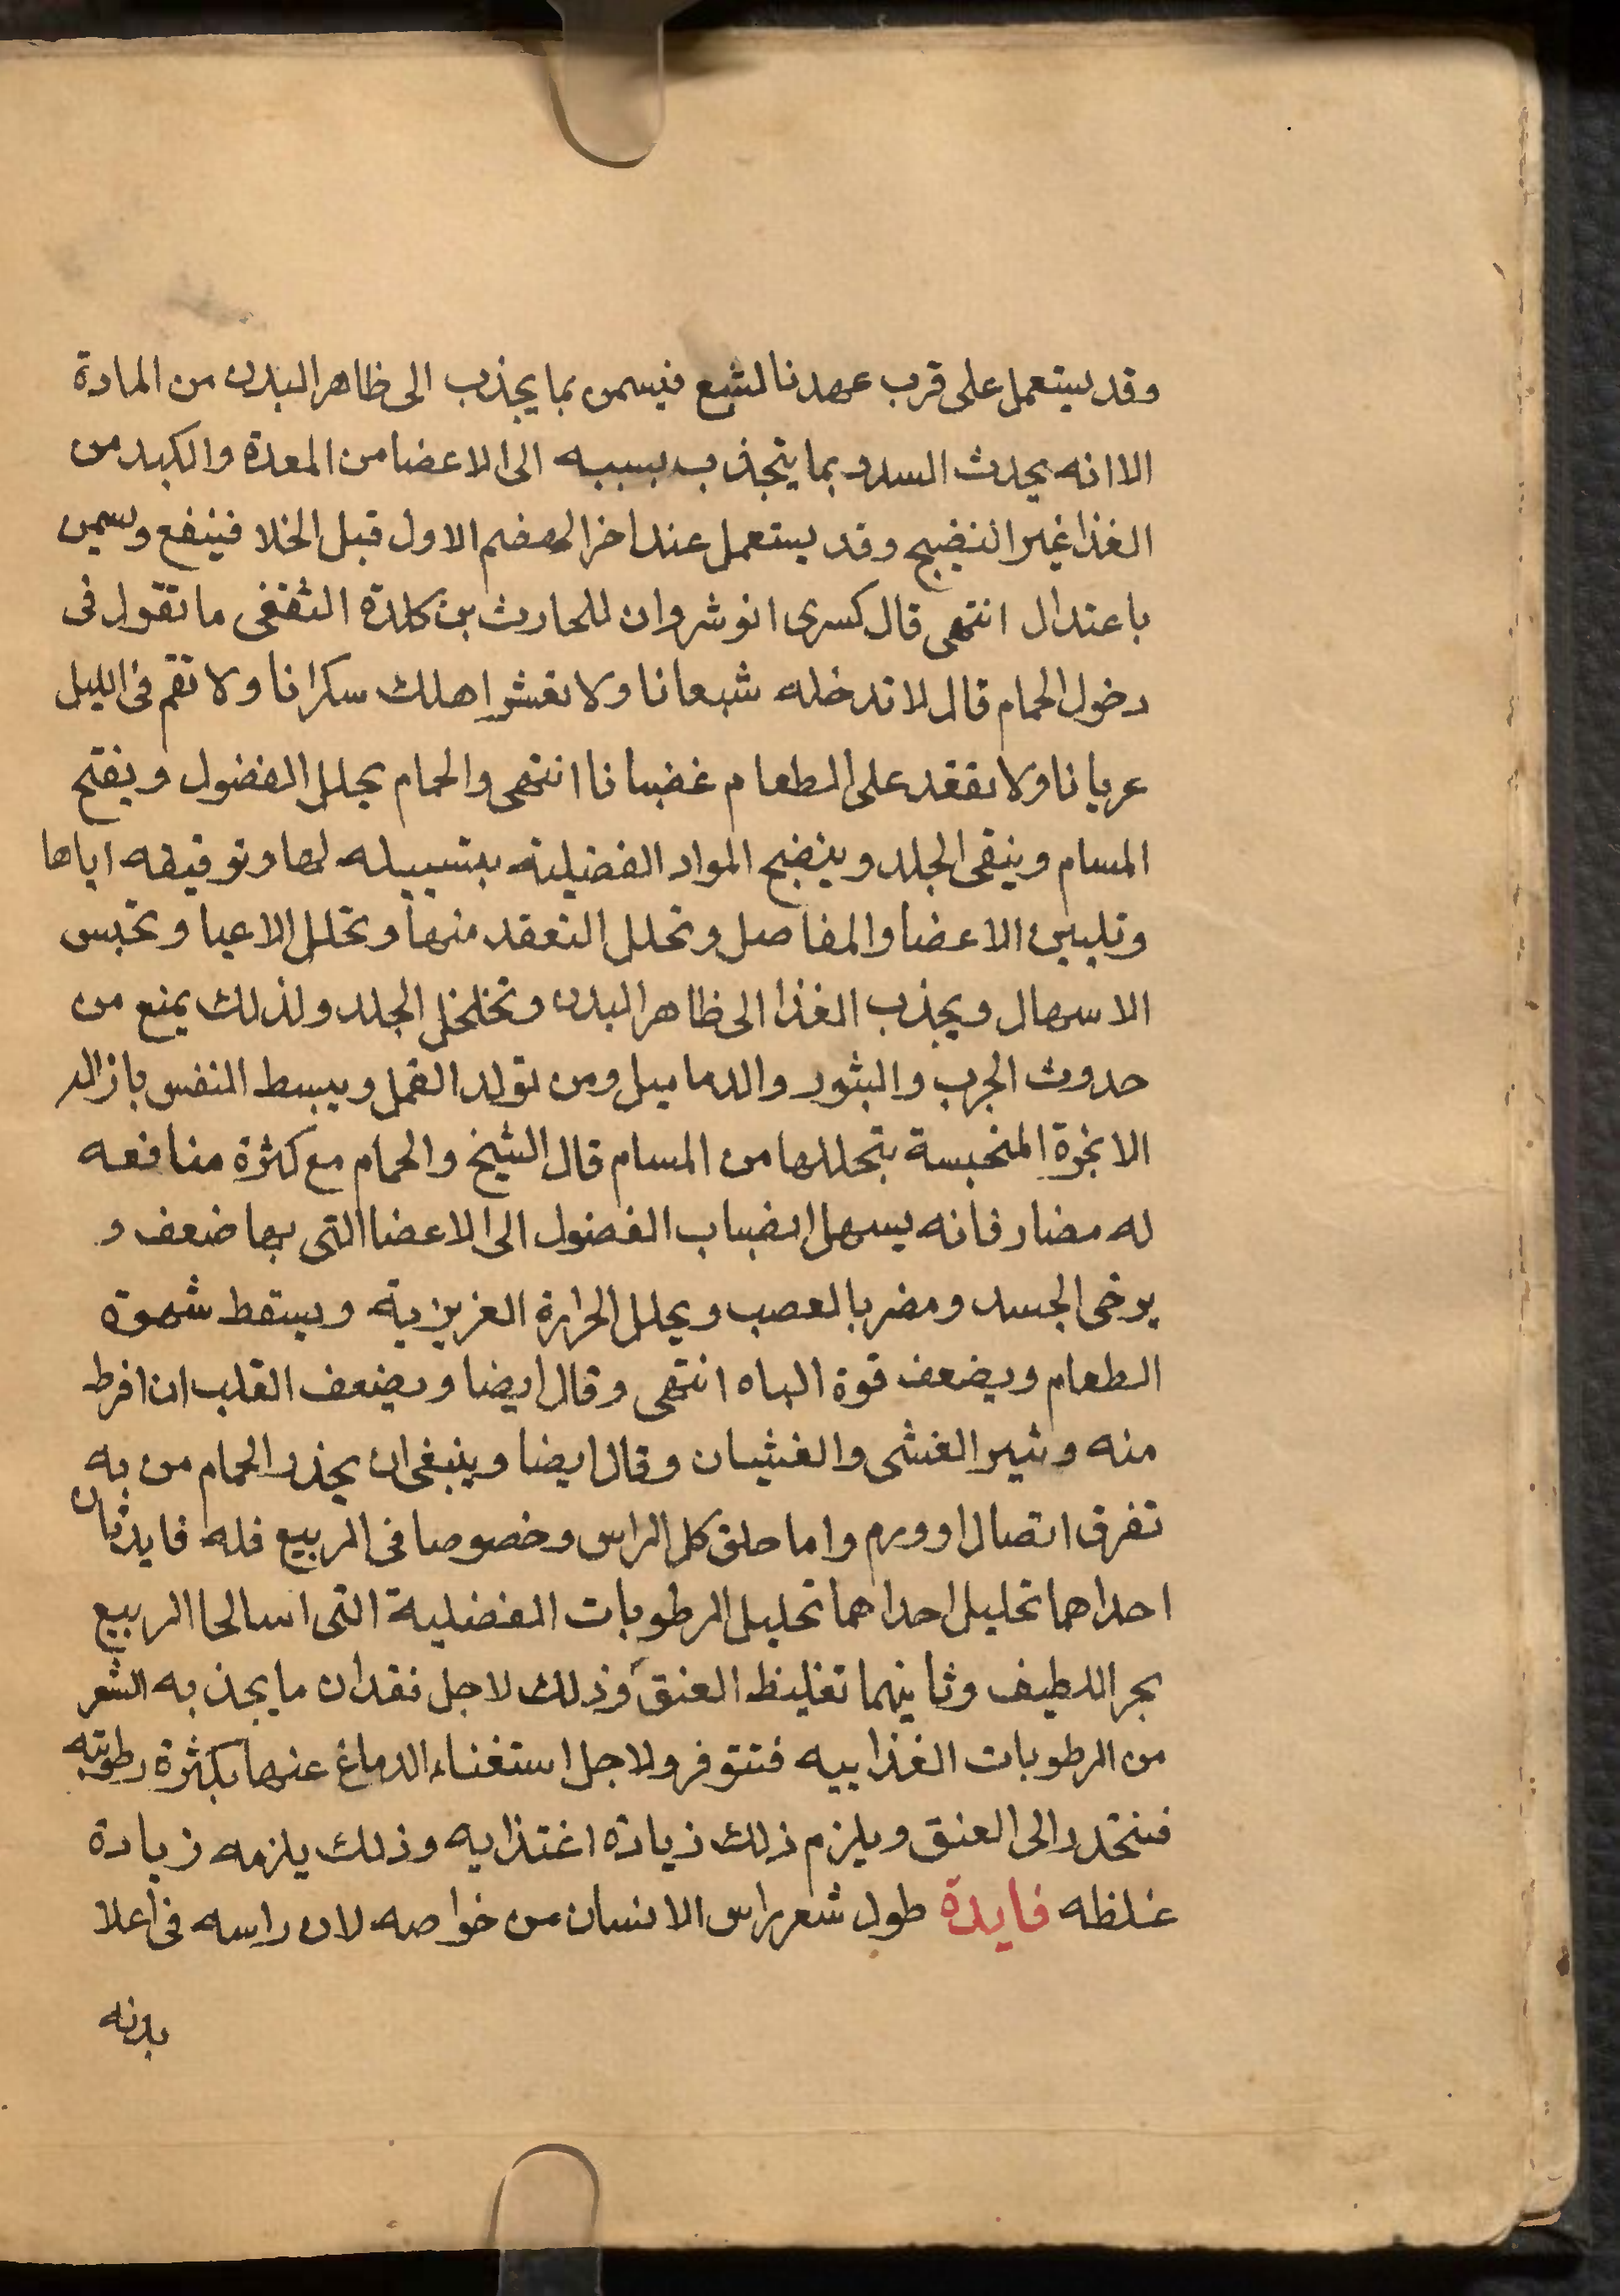 وقد يستعمل على قرب عهدنا لشبع فيسمن بما يجذب الى ظاهر البدن من المادة
الا انه يحدث السدد بما يتجذب بسببه الى الاعضا من المعدة والكبد من
الغذا غير النضيج وقد يستعمل عند اخر الهضم الاول قبل الخلا فينفع ويسمن
باعتدال انتهى قال كسرى انوشروان للحارث بن كلدة الثقفى ما تقول فى
دخول الحمام قال لا تدخله شبعانا ولا تغش اهلك سكرانا ولا تقم فى الليل
عريانا ولا تقعد على الطعام غضبانا انتهى والحمام يحلل الفضول ويفتح
المسام وينقى الجلد وينضج المواد الفضيلية بتسييله لها وترقيقه اياها
وتليين الاعضا والمفاصل وتحلل التعقد منها وتحلل الاعيا وتحبس
الاسهال ويجذب الغذا الى ظاهر البدن وتخلخل الجلد ولذلك يمنع من
حدوث الجرب والبثور والدماميل ومن تولد القمل ويبسط النفس بازالة
الابخرة المنحبسة بتحللها من المسام قال الشيخ والحمام مع كثرة منافعه
له مضار فانه يسهل انضباب الفضول الى الاعضا التى بها ضعف و
يرخى الجسد ومضر بالعصب ويحلل الحرارة الغريزية ويسقط شهوة
الطعام ويضعف قوة الباه انتهى وقال ايضا ويضعف القلب ان افرط
منه وثير الغشى والغثيان وقال ايضا وينبغى ان يحذر الحمام من به
تفرق اتصال او ورم واما حلق كل الراس وخصوصا فى الربيع فله فايدتان
احداهما تحليل احداهما تحليل الرطوبات الفضلية التى اسالها الربيع
بحر اللطيف وثانيهما تغليظ العنق وذلك لاجل فقدان ما يجذبه الشعر
من الرطوبات الغذاييه فتتوفر ولاجل استغناء الدماغ عنها بكثرة رطوبته
فتنحدر الى العنق ويلزم ذلك زيادة اغتذايه وذلك يلزمه زيادة
غلظه فايدة طول شعر راس الانسان من خواصه لان راسه فى اعلا
بدنه